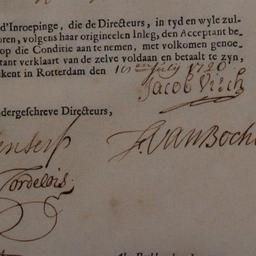 d'Inroepinge, die de Directeurs, in tyd en wyle zul-
oren, volgens haar origineelen Inleg, den Acceptant be-
op die Conditie aan te nemen, met volkomen genoe-
tant verklaart van de zelve voldaan en betaalt te zyn,
ekent in Rotterdam den 10en July 1720
Jacob Visch
dergeschreve Directeurs,
Tordelois